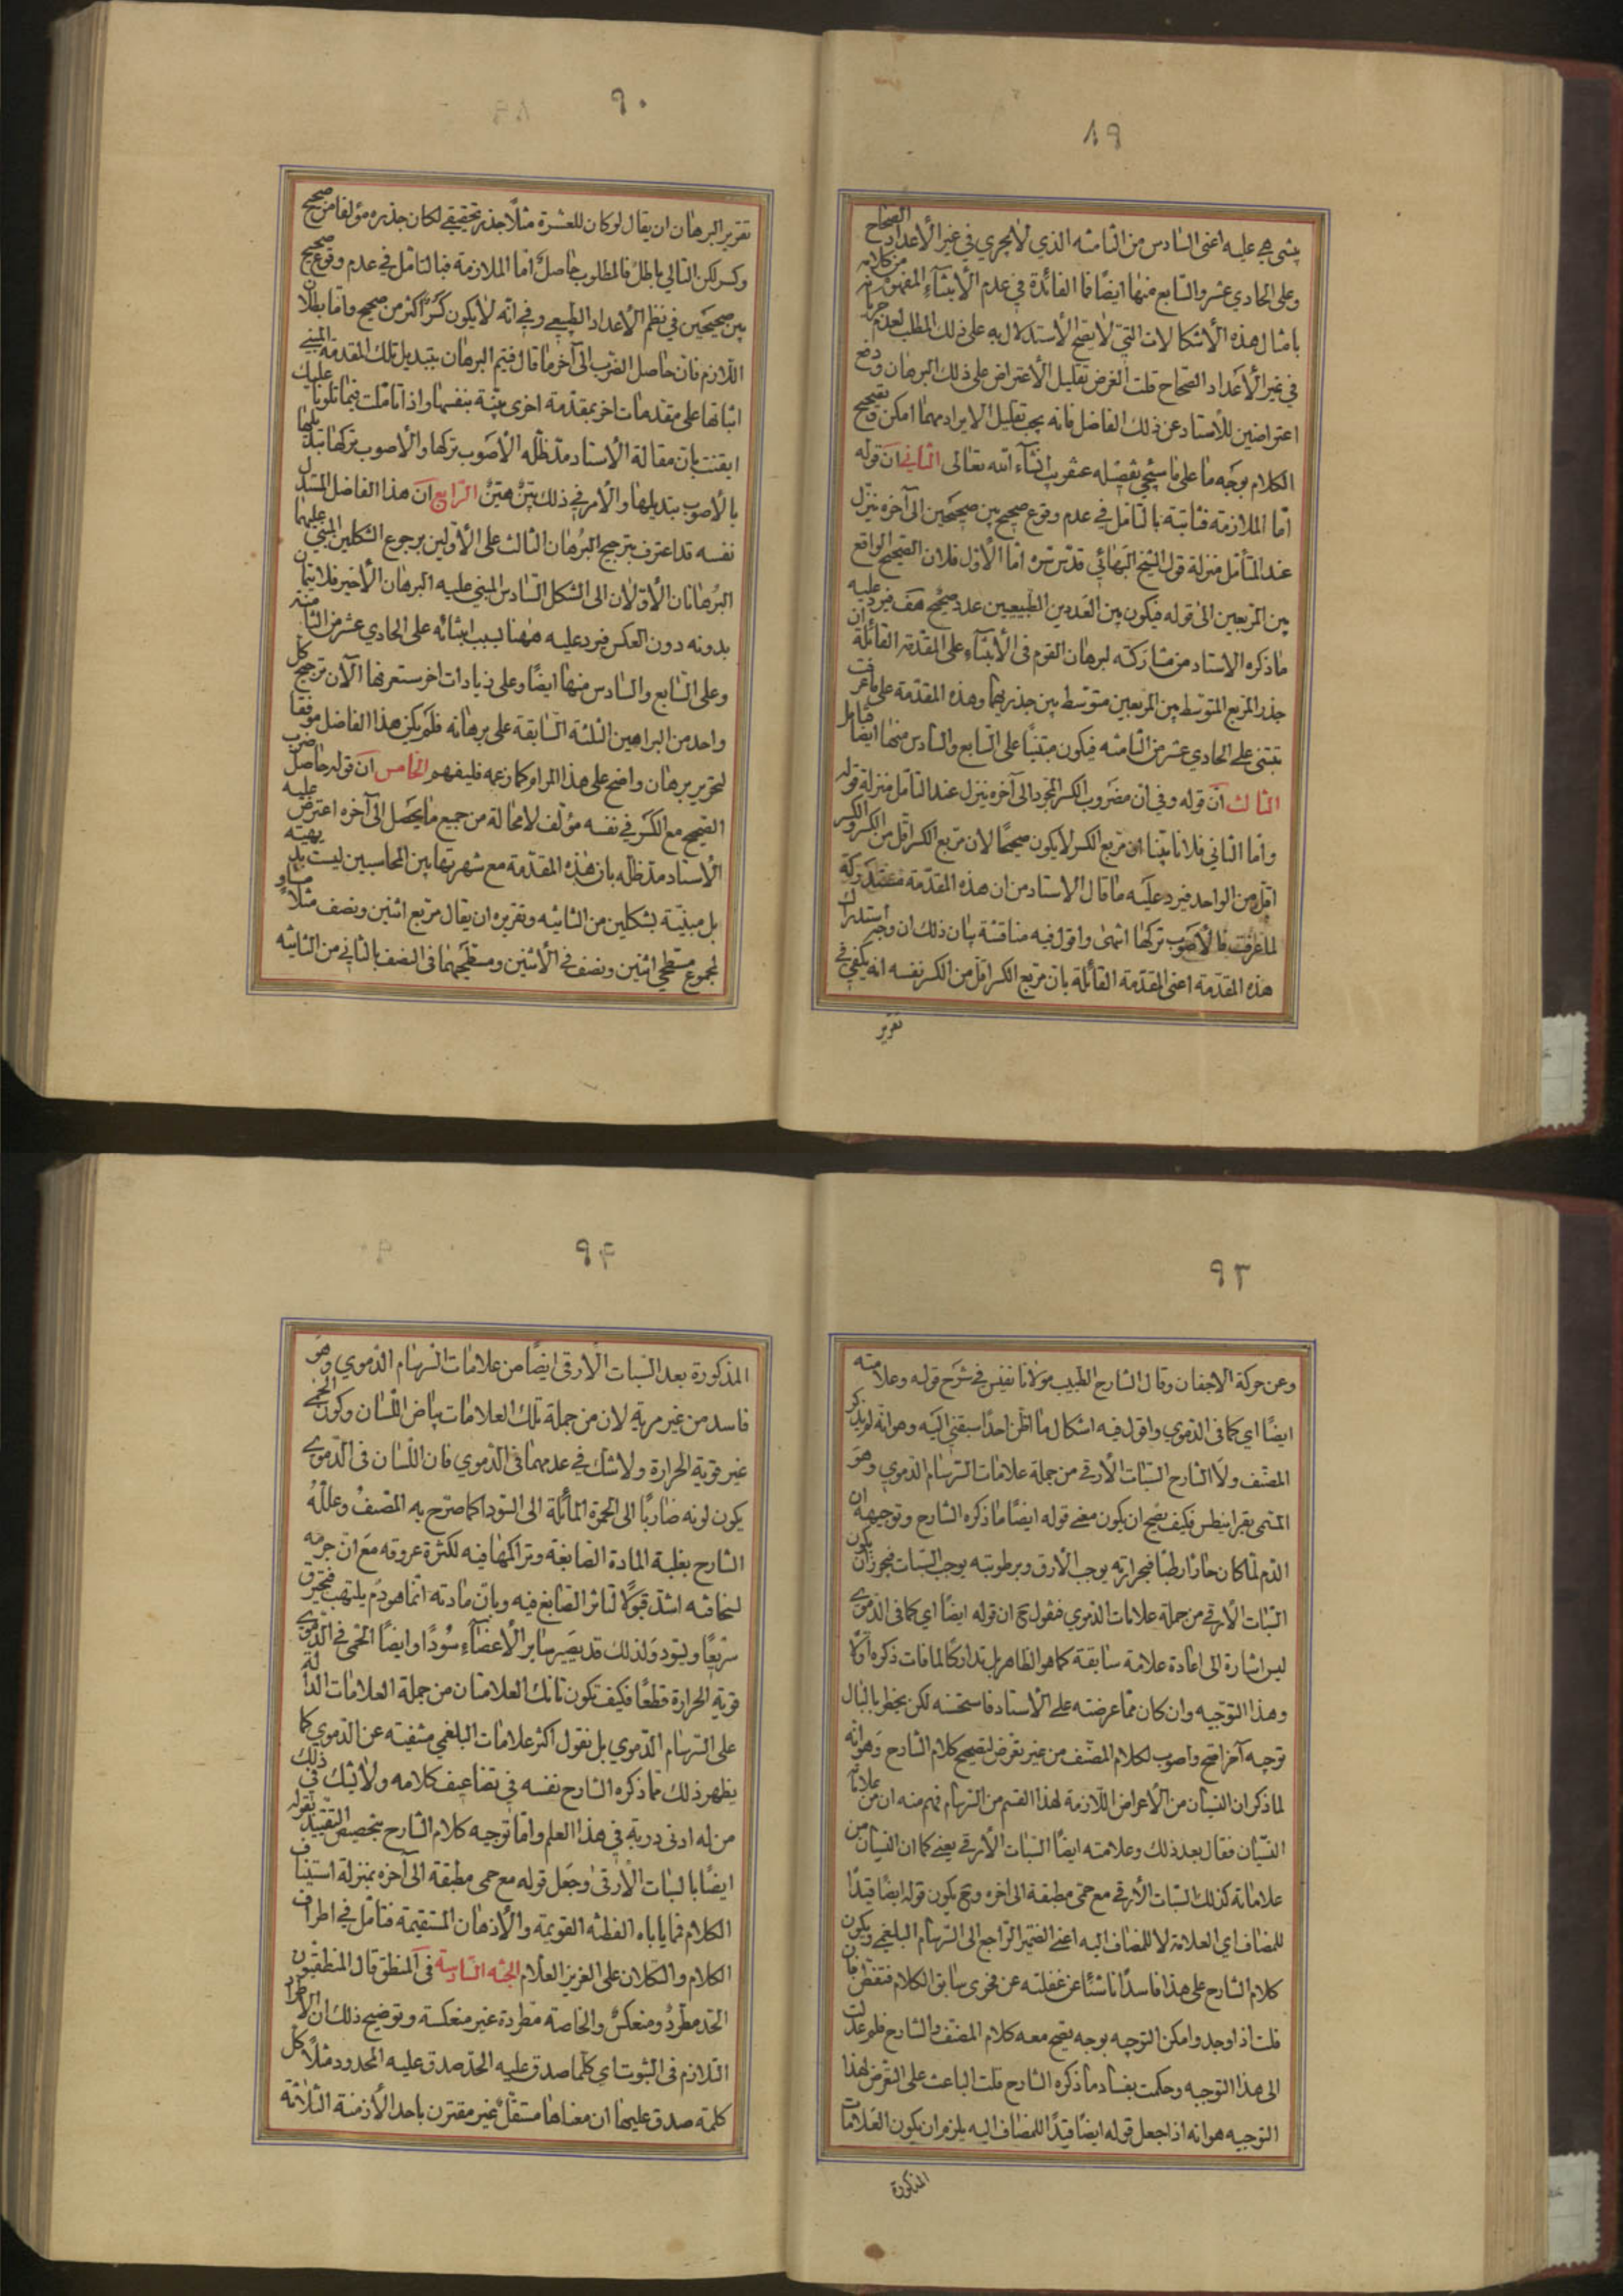 ٨٩
يبتنى هي عليه اعنى السادس من الثامنه الذي لا يجري في غير الأعداد الصحاح
وعلى الحادي عشر والسابع منها ايضًا فما الفائدة في عدم الأبتناء المفهوم من كلامه
بامثال هذه الأشكالات التي لا يصح الأستدلال به على ذلك المطلب لعدم جريانه
في غير الأعداد الصحاح قلت الغرض تقليل الأعتراض على ذلك البرهان ودفع
اعتراضين للأستاد عن ذلك الفاضل فانه يجب تقليل الايراد مهما امكن وتصحيح
الكلام بوجه ما على ما سيجئ تفصيله عنقريب انشاء الله تعالى الثاني ان قوله
اما الملازمة فثابتة بالتامل في عدم وقوع صحيح بين صحيحين الى آخره ينزل
عند المتأمل منزلة قول الشيخ البهائي قدس سره اما الأول فلان الصحيح الواقع
بين المربعين الى قوله فيكون بين العددين الطبيعيين عدد صحيح هف فيرد عليه
ما ذكره الاستاد من مشاركته لبرهان القوم في الأبتناء على المقدمة القائلة ان
جذر المربع المتوسط بين المربعين متوسط بين جذريهما وهذه المقدمة على ما عرفت
تبتنى على الحادي عشر من الثامنه فيكون مبتنيًا على السابع والسادس منها ايضا فتامل
الثالث ان قوله وفي ان مضروب الكسر المجرد الى آخره ينزل عند التأمل منزلة قوله
واما الثاني فلانا بينا ان مربع الكسر لا يكون صحيحًا لان مربع الكسر اقل من الكسر والكسر
اقل من الواحد فيرد عليه ما قال الاستاد من ان هذه المقدمة مستدركة
لما عرفت فالأصوب تركها انتهى واقول فيه مناقشة بيان ذلك ان وجه استدراك
هذه المقدمة اعنى المقدمة القائلة بان مربع الكسر اقل من الكسر نفسه انه يكفي في
تقرير
٩٠
تقرير البرهان ان يقال لو كان للعشرة مثلًا جذر تحقيقي لكان جذره مؤلفا من صحيح
وكسر لكن التالي باطل فالمطلوب حاصل اما الملازمة فبالتامل في عدم وقوع صحيح
بين صحيحين في نظم الأعداد الطبيعي وفي انه لا يكون كسرٌ اكثر من صحيح واما بطلان
اللازم فان حاصل الضرب الى آخر ما قال فيتم البرهان بتبديل تلك المقدمة المبني
اثباتها على مقدمات اخر بمقدمة اخرى بينة بنفسها واذا تاملت فيما تلونا عليك
ايقنت بان مقالة الأستاد مد ظله الأصوب تركها والأصوب تركها بتبديلها
بالأصوب تبديلها والأمر في ذلك بين هين الرابع ان هذا الفاضل المستدل
نفسه قد اعترف بترجيح البرهان الثالث على الأولين برجوع الشكلين المبني عليهما
البرهانان الأولان الى الشكل السادس المبني عليه البرهان الأخير فلا يتمان
بدونه دون العكس فيرد عليه ههنا لسبب ابتنائه على الحادي عشر من الثامنة
وعلى السابع والسادس منها ايضًا وعلى زيادات اخر ستعرفها الآن ترجيح كل
واحد من البراهين الثلثة السابقة على برهانه فلم يكن هذا الفاضل موفقا
لتحرير برهان واضح على هذا المرام كما زعمه فليفهم الخامس ان قوله حاصل ضرب
الصحيح مع الكسر في نفسه مؤلف لا محالة من جميع ما يحصل الى آخره اعترض عليه
الأستاد مد ظله بان هذه المقدمة مع شهرتها بين المحاسبين ليست بديهيته
بل مبنية بشكلين من الثانيه وتقريره ان يقال مربع اثنين ونصف مثلًا مساو
لمجموع مسطحي اثنين ونصف في الأثنين ومسطحهما في النصف بالثاني من الثانيه
٩٣
وعن حركة الاجفان وقال الشارح الطبيب مولانا نفيس في شرح قوله وعلامته
ايضًا اي كما في الدموي واقول فيه اشكال ما اظن احدًا سبقني اليه وهو انه لم يذكر
المصنف ولا الشارح السبات الأرقي من جملة علامات السرسام الدموي وهو
المسمى بقرانيطس فكيف يصح ان يكون معنى قوله ايضًا ما ذكره الشارح وتوجيهه ان
الدم لما كان حارًا رطبًا فبحرارته يوجب الأرق وبرطوبته يوجب السبات فيجوز ان يكون
السبات الأرقي من جملة علامات الدموي فنقول ح ان قوله ايضًا اي كما في الدموي
ليس اشارة الى اعادة علامة سابقة كما هو الظاهر بل تداركًا لما فات ذكره اولًا
وهذا التوجيه وان كان مما عرضته على الأستاد فاستحسنه لكن يخطر بالبال
توجيه آخر اصح واصوب لكلام المصنف من غير تعرض لتصحيح كلام الشارح وهو انه
لما ذكر ان النسيان من الأعراض اللازمة لهذا القسم من السرسام فهم منه ان من علاماته
النسيان فقال بعد ذلك وعلامته ايضًا السبات الأرقي يعني كما ان النسيان من
علاماته كذلك السبات الأرقي مع حمى مطبقة الى آخره وح يكون قوله ايضًا قيدًا
للمضاف اي العلامة لا للمضاف اليه اعني الضمير الراجع الى السرسام البلغمي ويكون
كلام الشارح على هذا فاسدًا ناشئًا عن غفلته عن فحوى سابق الكلام فتفطن فان
قلت اذا وجد وامكن التوجيه بوجه يصح معه كلام المصنف والشارح فلم عدلت
الى هذا التوجيه وحكمت بفساد ما ذكره الشارح قلت الباعث على التعرض لهذا
التوجيه هو انه اذا جعل قوله ايضًا قيدًا للمضاف اليه يلزم ان يكون العلامات
المذكورة
٩٤
المذكورة بعد السبات الأرقى ايضًا من علامات السرسام الدموي وهو
فاسد من غير مرية لان من جملة تلك العلامات بياض اللسان وكون الحمى
غير قوية الحرارة ولا شك في عدمهما في الدموي فان اللسان في الدموي
يكون لونه ضاربًا الى الحمرة المائلة الى السوداء كما صرح به المصنف وعلله
الشارح بغلبة المادة الصابغة وتراكمها فيه لكثرة عروقه مع ان جرمه
لسخافته اشد قبولًا لتاثر الصابغ فيه وبان مادته انما هو دم يلتهب فيحترق
سريعًا ويسود ولذلك قد يصير ساير الأعضاء سودًا وايضًا الحمى في الدموي
قوية الحرارة قطعًا فكيف تكون تانك العلامتان من جملة العلامات الدالة
على السرسام الدموي بل نقول اكثر علامات البلغمي منتفيته عن الدموي كما
يظهر ذلك مما ذكره الشارح نفسه في تضاعيف كلامه ولا يشك في ذلك
من له ادنى دربة في هذا العلم واما توجيه كلام الشارح بتخصيص التقييد بقوله
ايضًا بالسبات الأرقى وجعل قوله مع حمى مطبقة الى آخره بمنزلة استيناف
الكلام فمما ياباه الفطنه القويمة والأذهان المستقيمة فتأمل في اطراف
الكلام والتكلان على العزيز العلام الجثه السادسة في المنطق قال المنطقيون
الحد مطردٌ ومنعكسٌ والخاصة مطردة غير منعكسة وتوضيح ذلك ان الأطراد
التلازم في الثبوت اي كلما صدق عليه الحد صدق عليه المحدود مثلًا كل
كلمة صدق عليها ان معناها مستقلٌ غير مقترن باحد الأزمنة الثلاثة